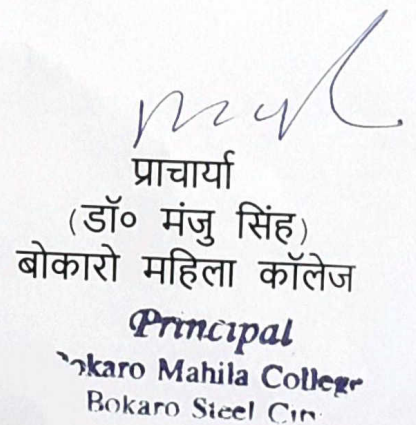 प्राचार्या
(डॉ० मंजु सिंह)
बोकारो महिला कॉलेज
Principal
Bokaro Mahila College
Bokaro Steel